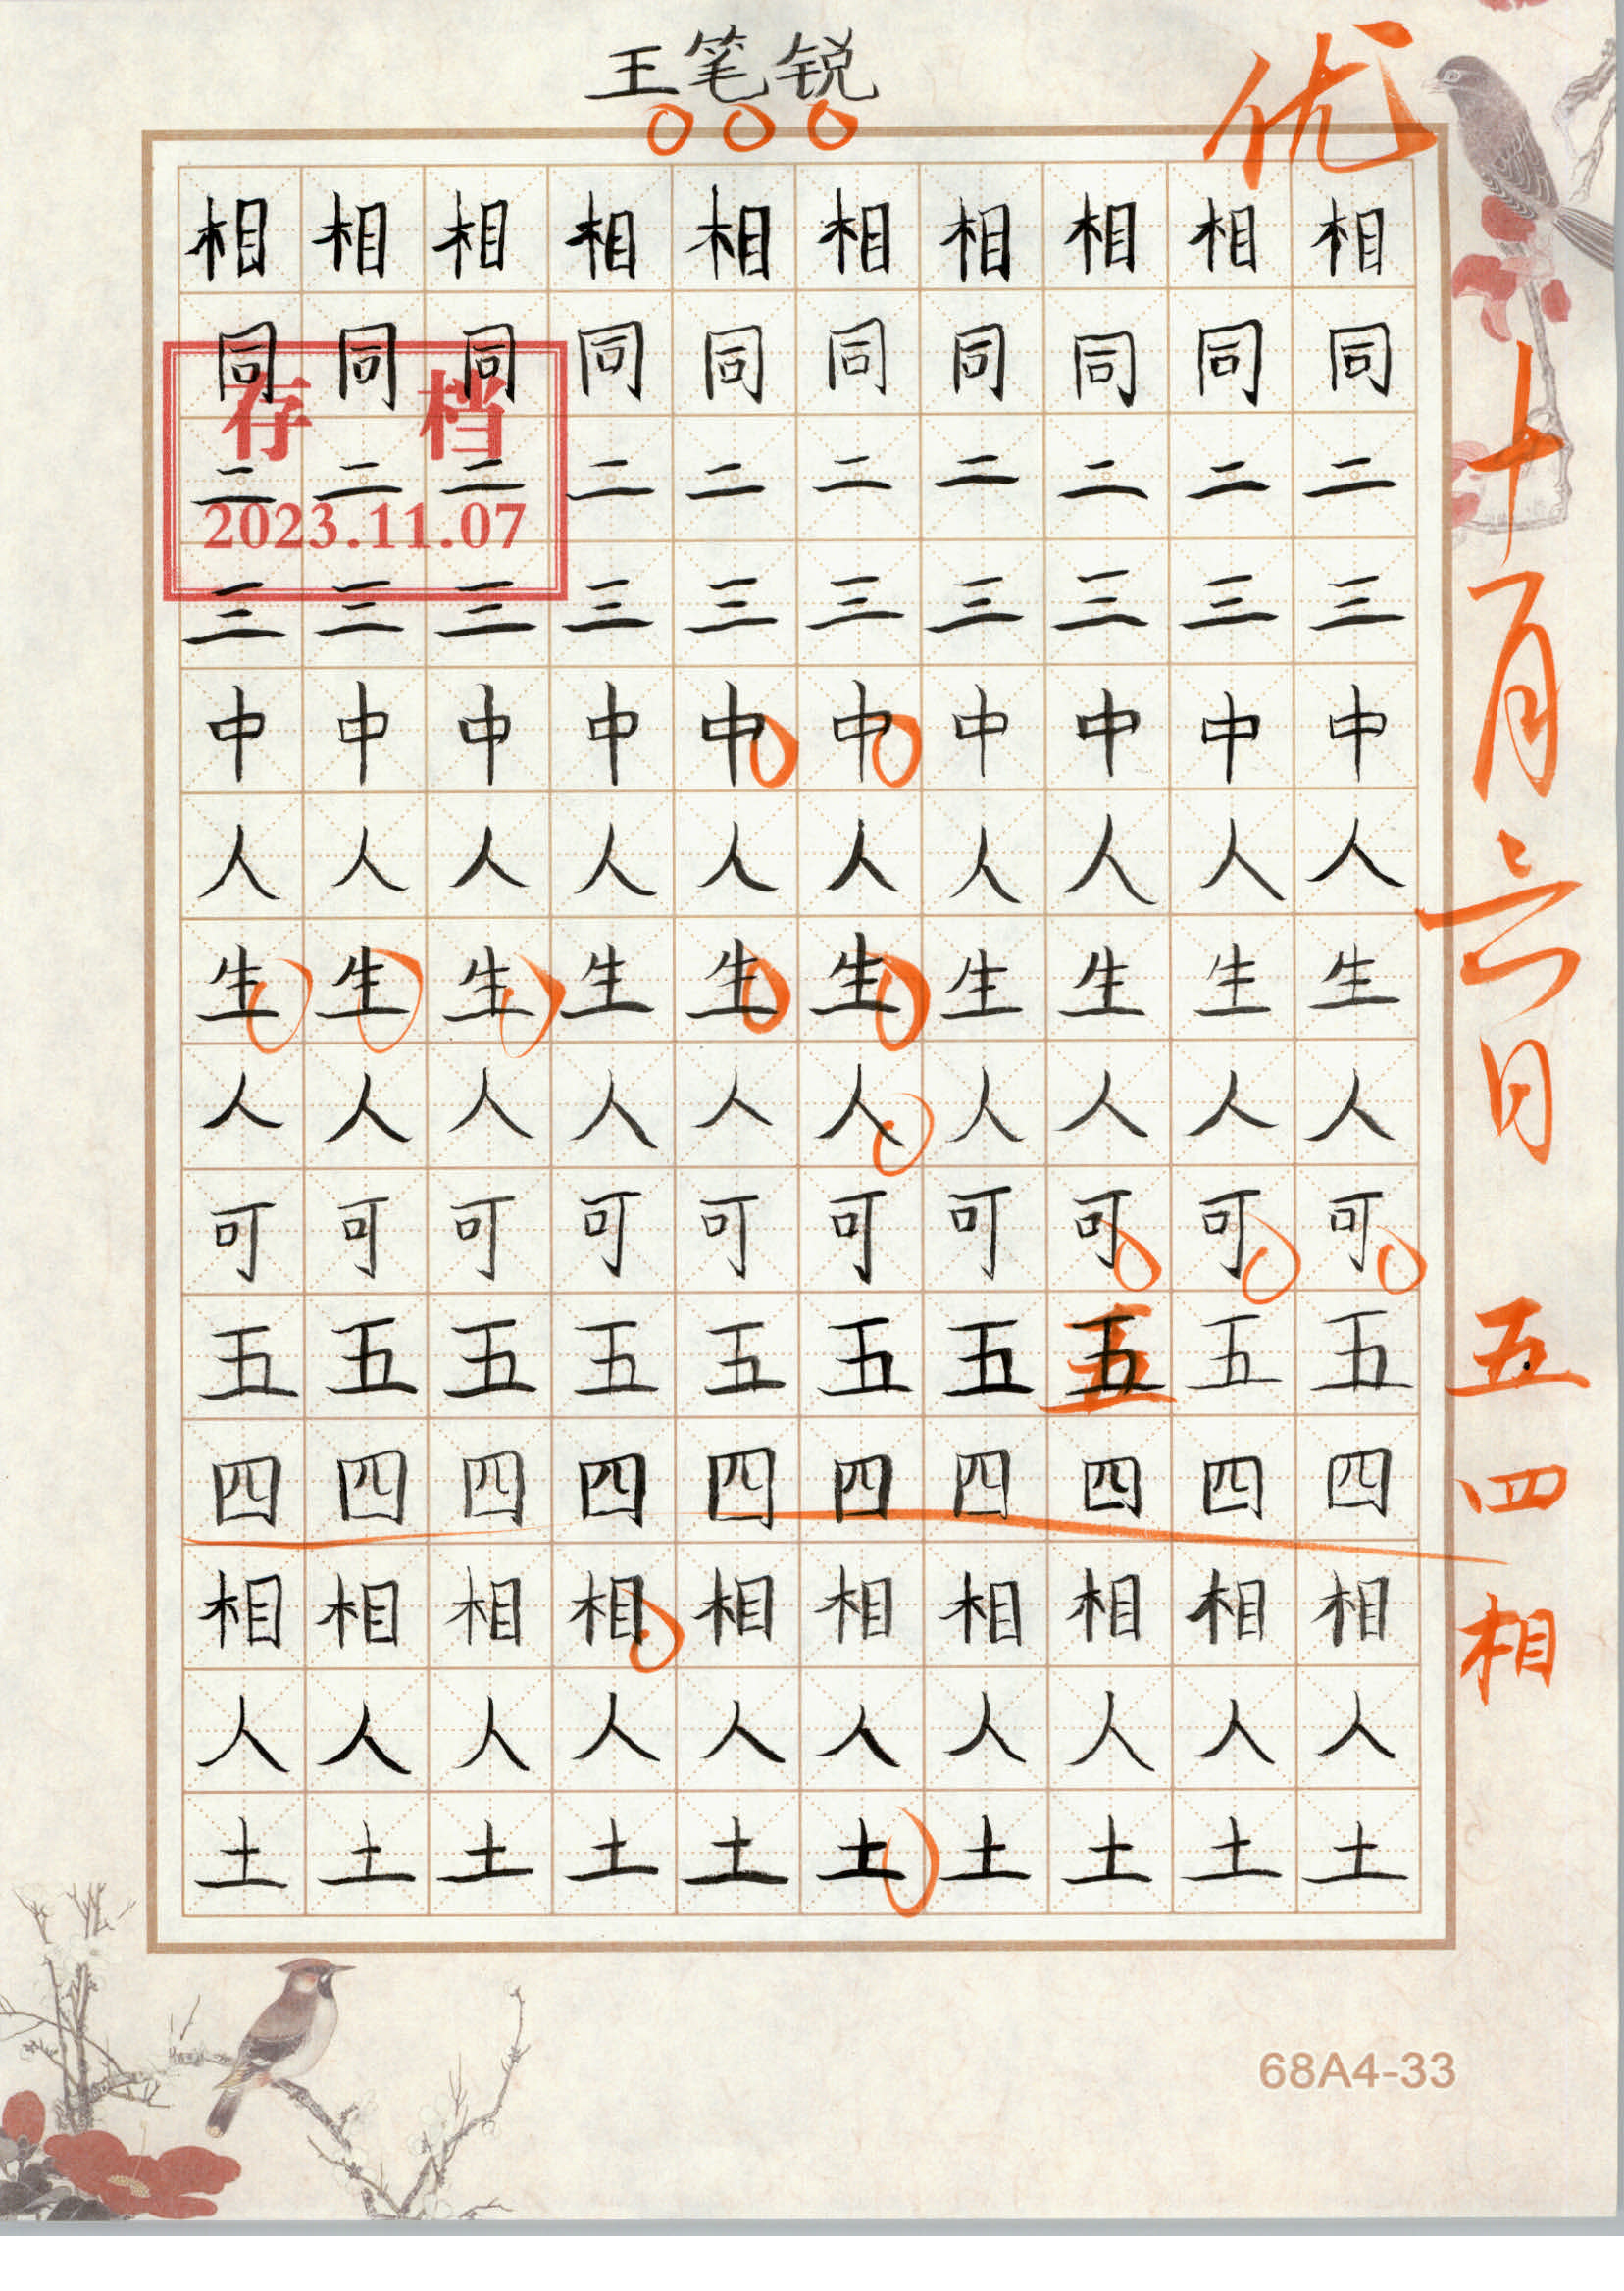 王笔锐
优
相相相相相相相相相相
同同同同同同同同同同
存 档
二二二二二二二二二二
2023.11.07
三三三三三三三三三三
中中中中中中中中中中
人人人人人人人人人人
生生生生生生生生生生
人人人人人人人人人人
可可可可可可可可可可
五五五五五五五五五五
四四四四四四四四四四
相相相相相相相相相相
人人人人人人人人人人
土土土土土土土土土土
十月六日
五四相
68A4-33